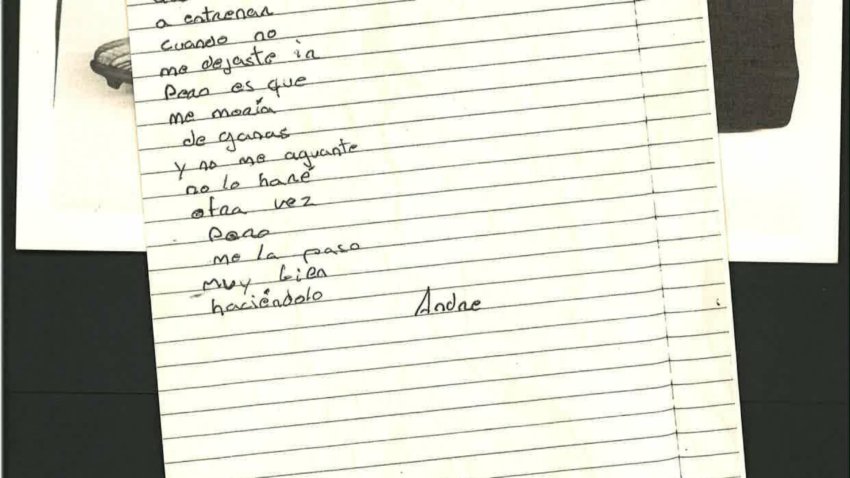 a entrenar
cuando no
me dejaste ir
Pero es que
me moría
de ganas
y no me aguante
no lo haré
otra vez
Pero
me la paso
muy bien
haciéndolo
Andre